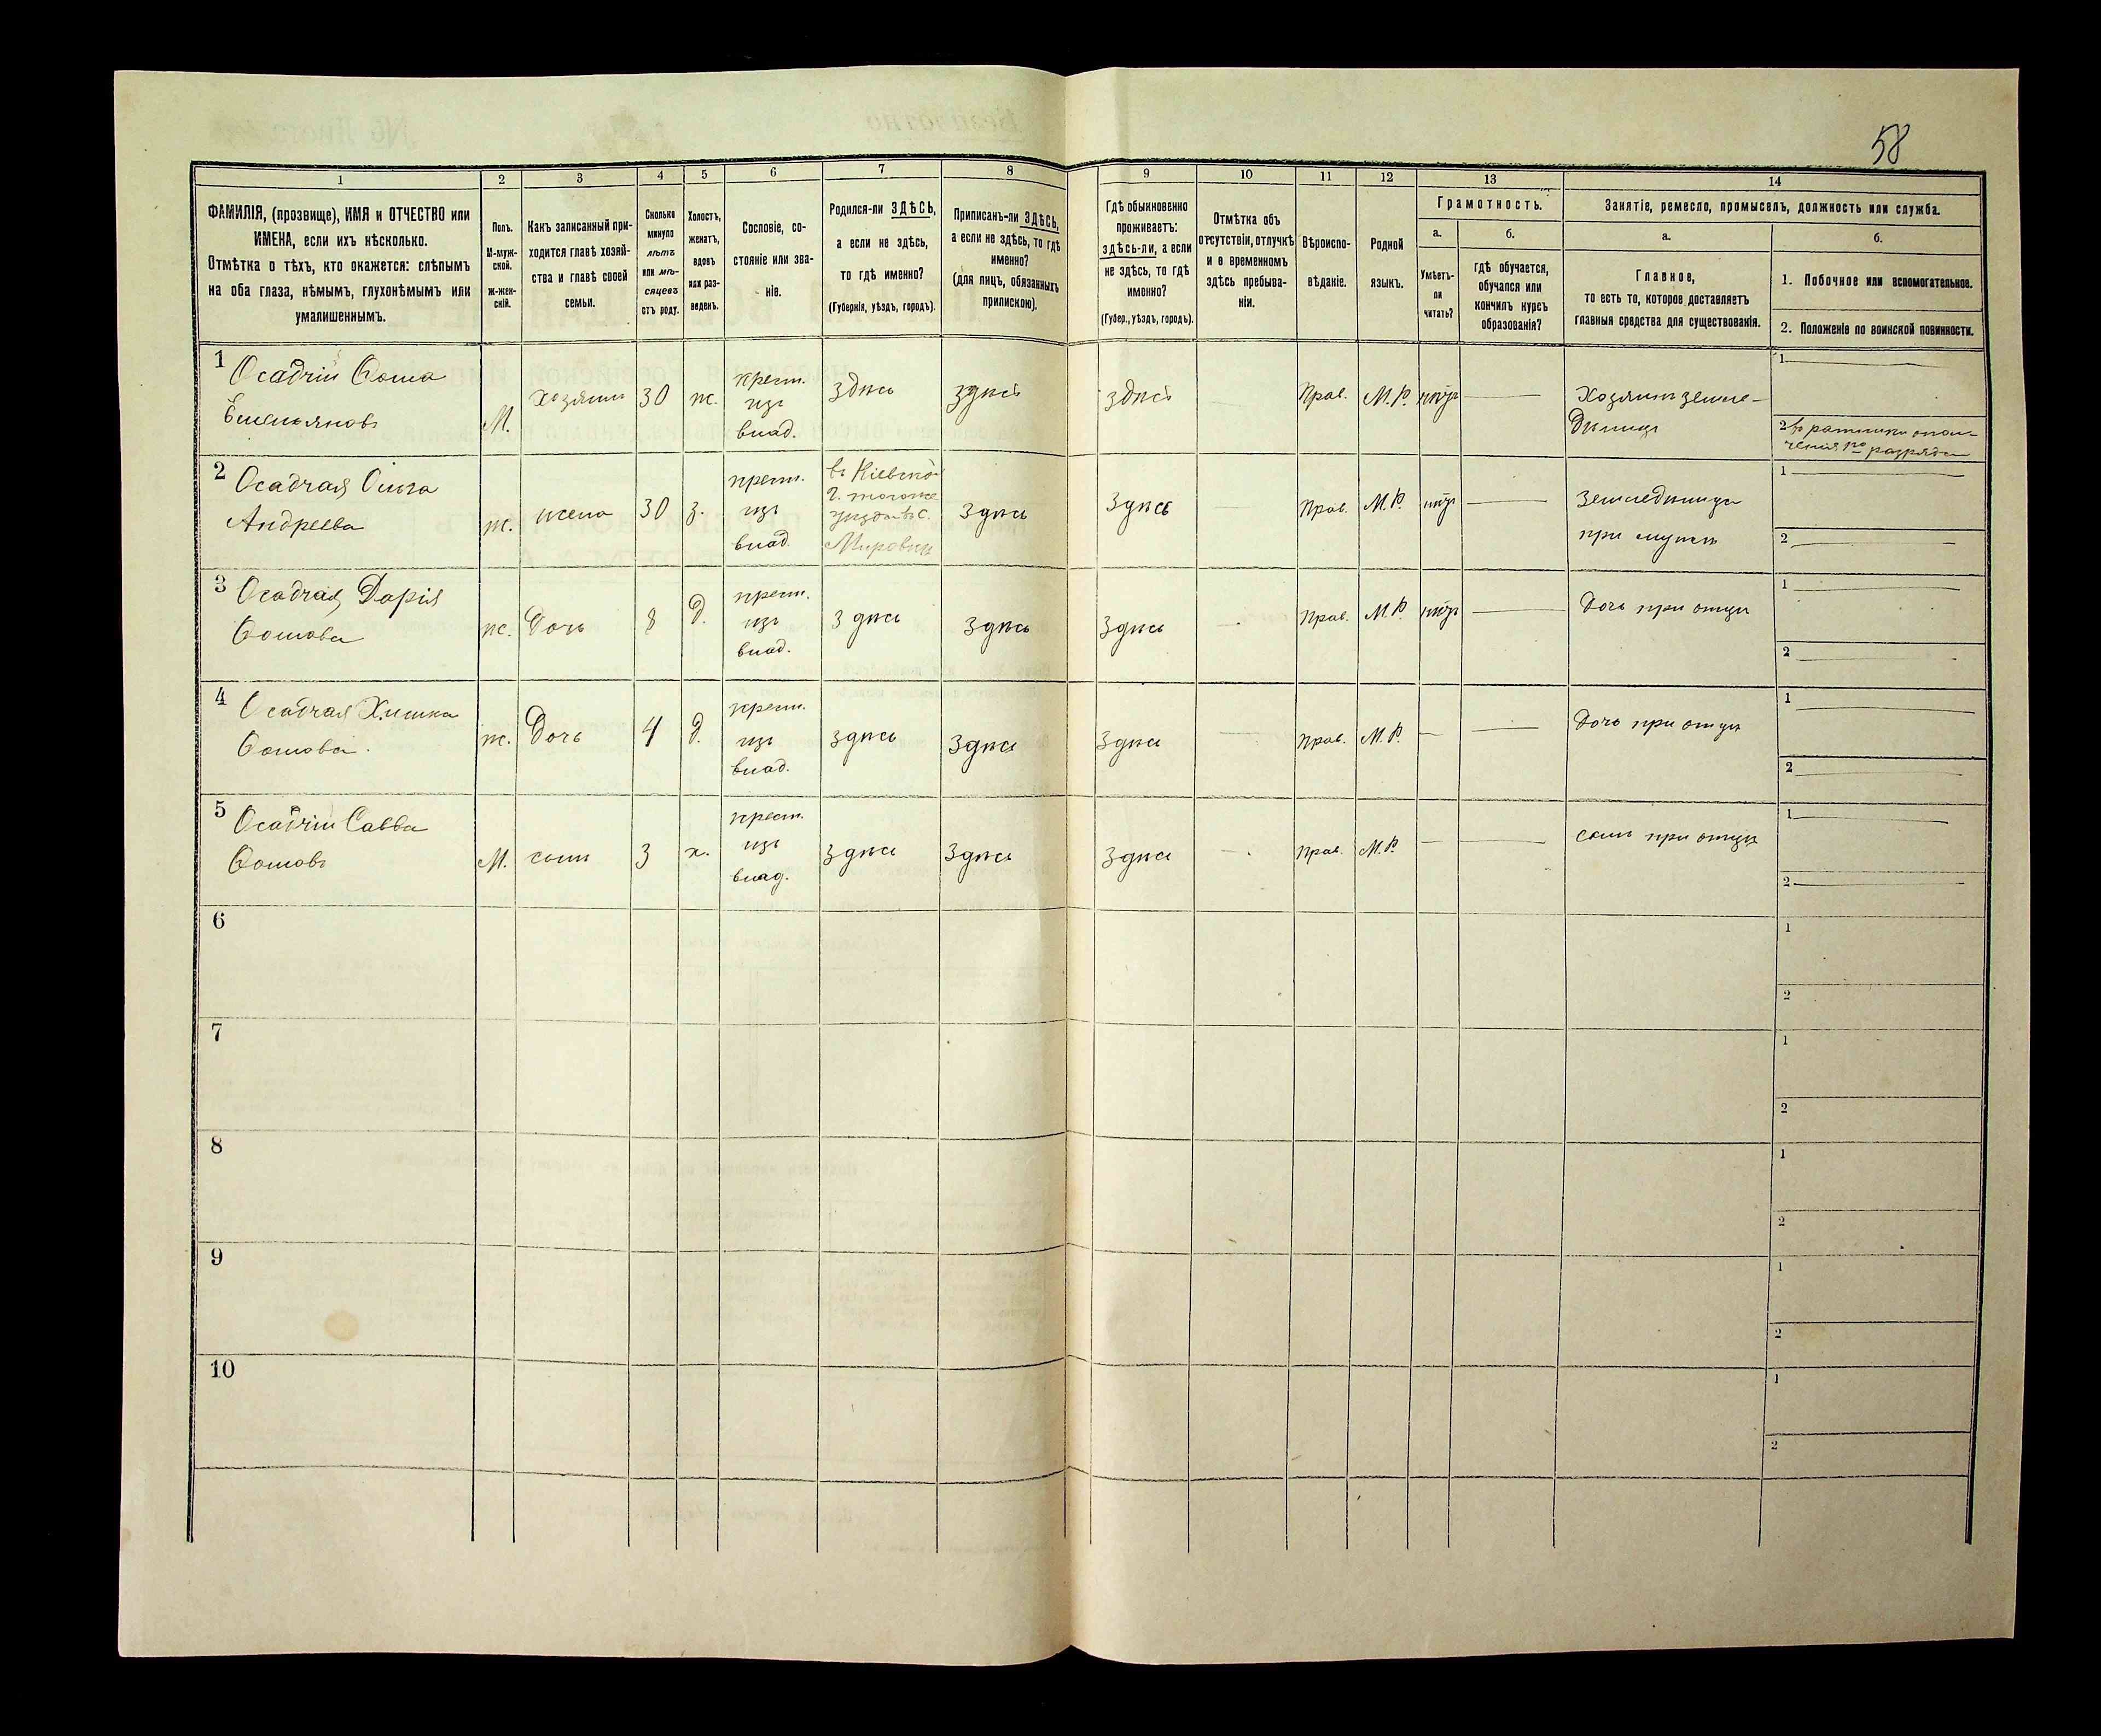 58
1
2
3
4
5
6
7
8
9
10
11
12
13
14
ФАМИЛІЯ, (прозвище), ИМЯ и ОТЧЕСТВО или
ИМЕНА, если ихъ нѣсколько.
Отмѣтка о тѣхъ, кто окажется: слѣпымъ
на оба глаза, нѣмымъ, глухонѣмымъ или
умалишеннымъ.
Полъ.
М-муж-
ской.
ж-жен-
скій.
Какъ записанный при-
ходится главѣ хозяй-
ства и главѣ своей
семьи.
Сколько
минуло
лѣтъ
или мѣ-
сяцевъ
отъ роду.
Холостъ,
женатъ,
вдовъ
или раз-
веденъ.
Сословіе, со-
стояніе или зва-
ніе.
Родился-ли ЗДѢСЬ,
а если не здѣсь,
то гдѣ именно?
(Губернія, уѣздъ, городъ).
Приписанъ-ли ЗДѢСЬ,
а если не здѣсь, то гдѣ
именно?
(для лицъ, обязанныхъ
припискою).
Гдѣ обыкновенно
проживаетъ:
здѣсь-ли, а если
не здѣсь, то гдѣ
именно?
(Губер., уѣздъ, городъ).
Отмѣтка объ
отсутствіи, отлучкѣ
и о временномъ
здѣсь пребыва-
ніи.
Вѣроиспо-
вѣданіе.
Родной
языкъ.
Грамотность.
а.
Умѣетъ-
ли
читать?
б.
гдѣ обучается,
обучался или
кончилъ курсъ
образованія?
Занятіе, ремесло, промыселъ, должность или служба.
а.
Главное,
то есть то, которое доставляетъ
главныя средства для существованія.
б.
1. Побочное или вспомогательное.
2. Положеніе по воинской повинности.
1 Осадчій Ѳома
Емельяновъ
М.
Хозяинъ
30
ж.
крест.
изъ
влад.
здѣсь
здѣсь
здѣсь
Прав.
М.Р.
нѣтъ
Хозяинъ земле-
дѣлецъ
1
2 въ ратники опол-
ченія разряда
2 Осадчая Ольга
Андреева
ж.
жена
30
з.
крест.
изъ
влад.
въ Кіевской
г. того же
уѣзда въ с.
Мировки
Здѣсь
Здѣсь
Прав.
М.Р.
нѣтъ
земледѣлица
при мужѣ
1
2
3 Осадчая Дарія
Ѳомова
ж.
Дочь
8
д.
крест.
изъ
влад.
Здѣсь
Здѣсь
Здѣсь
Прав.
М.Р.
нѣтъ
Дочь при отцѣ
1
2
4 Осадчая Химка
Ѳомова.
ж.
Дочь
4
д.
крест.
изъ
влад.
здѣсь
Здѣсь
Здѣсь
Прав.
М.Р.
Дочь при отцѣ
1
2
5 Осадчій Савва
Ѳомовъ
М.
сынъ
3
х.
крест.
изъ
влад.
Здѣсь
Здѣсь
Здѣсь
Прав.
М.Р.
сынъ при отцѣ
1
2
6
1
2
7
1
2
8
1
2
9
1
2
10
1
2